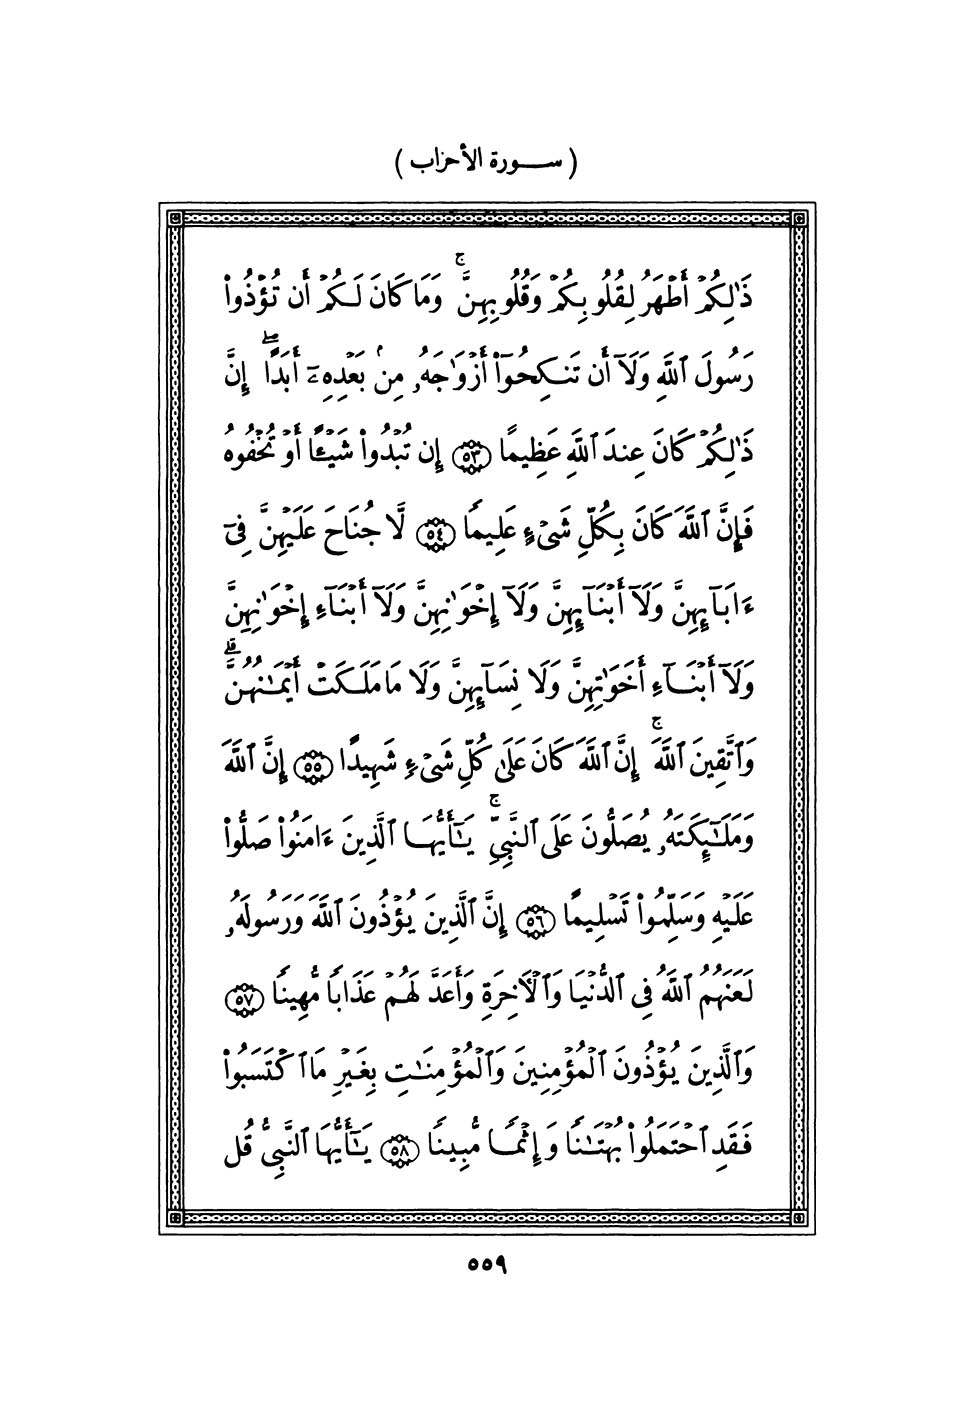 ( سورة الأحزاب )
ذَٰلِكُمْ أَطْهَرُ لِقُلُوبِكُمْ وَقُلُوبِهِنَّ ۚ وَمَا كَانَ لَكُمْ أَن تُؤْذُوا۟
رَسُولَ ٱللَّهِ وَلَآ أَن تَنكِحُوٓا۟ أَزْوَٰجَهُۥ مِنۢ بَعْدِهِۦٓ أَبَدًا ۖ إِنَّ
ذَٰلِكُمْ كَانَ عِندَ ٱللَّهِ عَظِيمًا ٥٣ إِن تُبْدُوا۟ شَيْـًٔا أَوْ تُخْفُوهُ
فَإِنَّ ٱللَّهَ كَانَ بِكُلِّ شَىْءٍ عَلِيمًا ٥٤ لَّا جُنَاحَ عَلَيْهِنَّ فِىٓ
ءَابَآئِهِنَّ وَلَآ أَبْنَآئِهِنَّ وَلَآ إِخْوَٰنِهِنَّ وَلَآ أَبْنَآءِ إِخْوَٰنِهِنَّ
وَلَآ أَبْنَآءِ أَخَوَٰتِهِنَّ وَلَا نِسَآئِهِنَّ وَلَا مَا مَلَكَتْ أَيْمَـٰنُهُنَّ ۗ
وَٱتَّقِينَ ٱللَّهَ ۚ إِنَّ ٱللَّهَ كَانَ عَلَىٰ كُلِّ شَىْءٍ شَهِيدًا ٥٥ إِنَّ ٱللَّهَ
وَمَلَـٰٓئِكَتَهُۥ يُصَلُّونَ عَلَى ٱلنَّبِىِّ ۚ يَـٰٓأَيُّهَا ٱلَّذِينَ ءَامَنُوا۟ صَلُّوا۟
عَلَيْهِ وَسَلِّمُوا۟ تَسْلِيمًا ٥٦ إِنَّ ٱلَّذِينَ يُؤْذُونَ ٱللَّهَ وَرَسُولَهُۥ
لَعَنَهُمُ ٱللَّهُ فِى ٱلدُّنْيَا وَٱلْـَٔاخِرَةِ وَأَعَدَّ لَهُمْ عَذَابًا مُّهِينًا ٥٧
وَٱلَّذِينَ يُؤْذُونَ ٱلْمُؤْمِنِينَ وَٱلْمُؤْمِنَـٰتِ بِغَيْرِ مَا ٱكْتَسَبُوا۟
فَقَدِ ٱحْتَمَلُوا۟ بُهْتَـٰنًا وَإِثْمًا مُّبِينًا ٥٨ يَـٰٓأَيُّهَا ٱلنَّبِىُّ قُل
٥٥٩